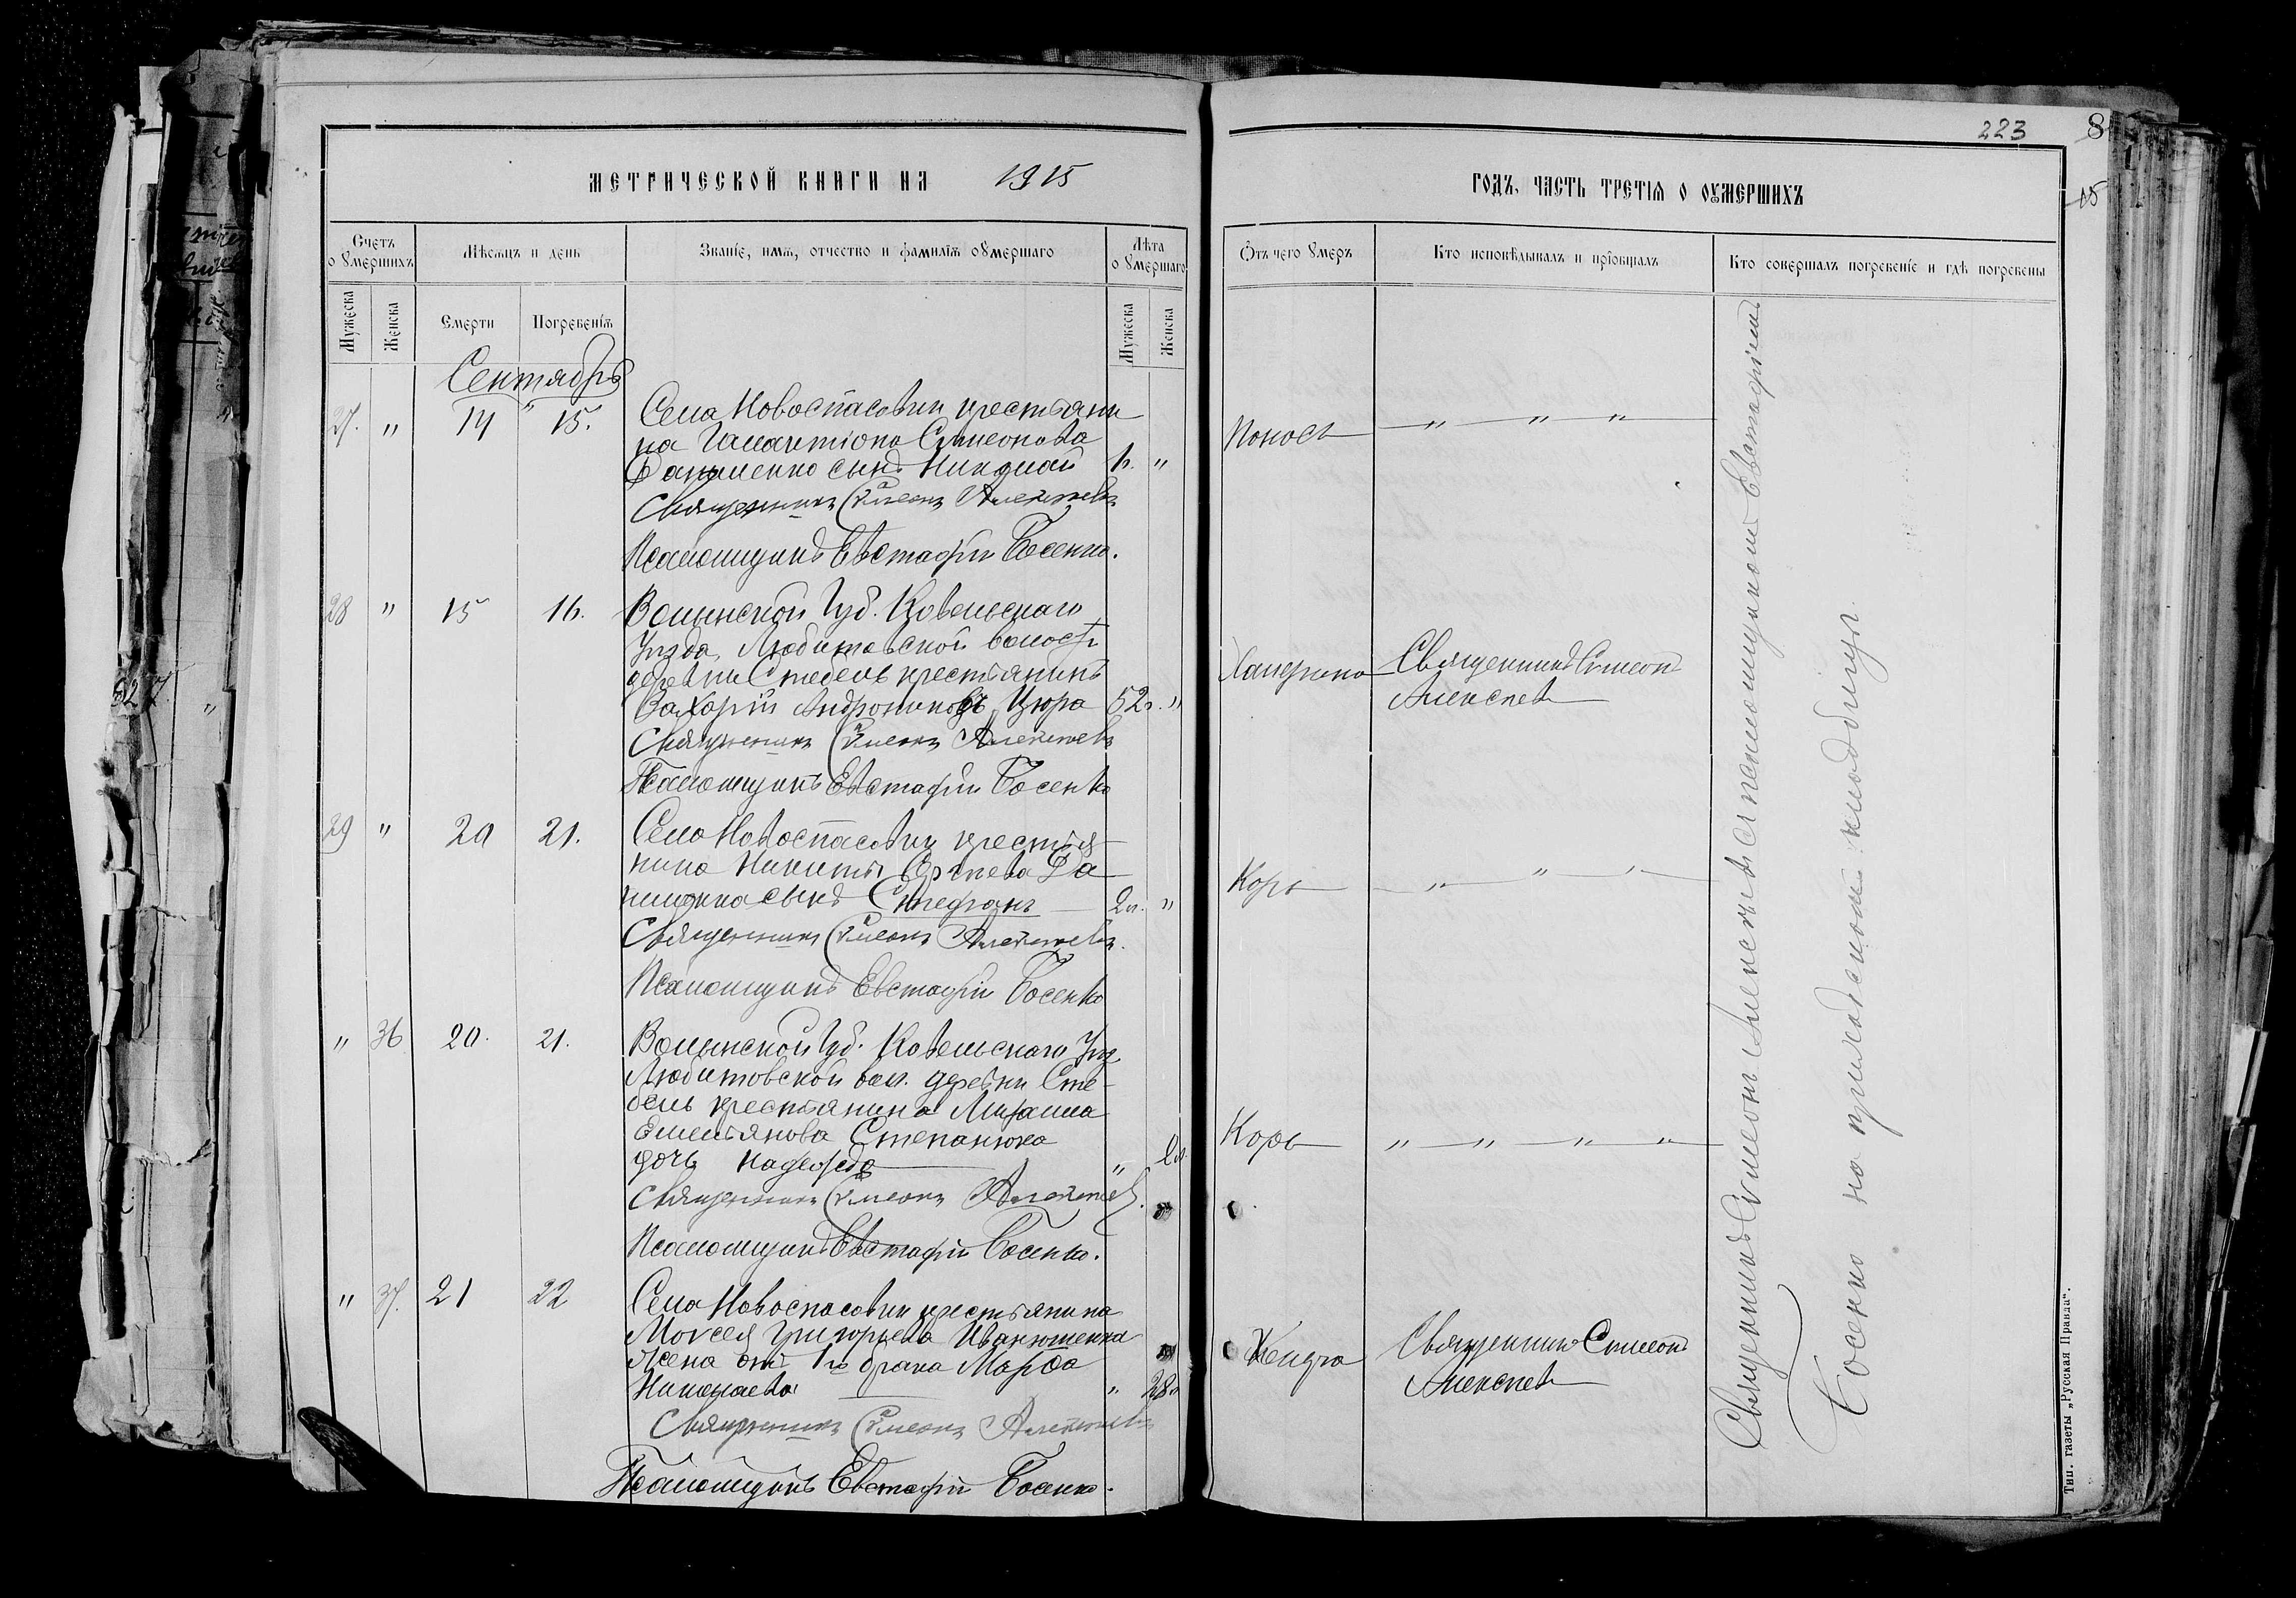 МЕТРИЧЕСКОЙ КНИГИ НА 1915
Счетъ о умершихъ
Мѣсяцъ и день
Званіе, имя, отчество и фамилія умершаго
Лѣта умершаго
Мужеска
Женска
Смерти
Погребенія
Мужеска
Женска
Сентябрь
27. " 14 15. Села Новоспасовки крестьяни
на Галактіона Симеонова
сынъ Николай "
Священникъ Симеонъ Алексѣевъ
Псаломщикъ Евстафій Босенко.
28 " 15 16. Волынской губ. Ковельскаго
Уѣзда, Любитовской волости
деревни Стебель крестьянинъ
Захарій Андрониковъ Цюра 52 л. "
Священникъ Симеонъ Алексѣевъ
Псаломщикъ Евстафій Босенко
29 " 20 21. Села Новоспасовки крестья
нина Никиты Да
сынъ Стефанъ 2 л. "
Священникъ Симеонъ Алексѣевъ.
Псаломщикъ Евстафій Босенко
" 36 20. 21. Волынской губ. Ковельскаго Уѣз.
Любитовской вол. деревни Сте
бель крестьянина Михаила
Емельянова Степанюка
дочь Надежда "
Священникъ Симеонъ Алексѣевъ.
Псаломщикъ Евстафій Босенко.
" 37. 21 22 Села Новоспасовки крестьянина
Моисея Григорьева Иванюшенка
жена отъ 1го брака Марфа
Николаева " 28
Священникъ Симеонъ Алексѣевъ
Псаломщикъ Евстафій Босенко.
223
8
15
ГОДЪ, ЧАСТЬ ТРЕТІЯ О УМЕРШИХЪ
Отъ чего умеръ
Кто исповѣдывалъ и пріобщалъ
Кто совершалъ погребеніе и гдѣ погребены
Поносъ " " "
Священникъ Симеонъ
Алексѣевъ
Корь " " "
Корь " " " "
Священникъ Симеонъ
Алексѣевъ
Священникъ Симеонъ Алексѣевъ съ псаломщикомъ Евстафіемъ
Босенко на приходскомъ кладбищѣ.
Тип. газеты „Русская Правда".